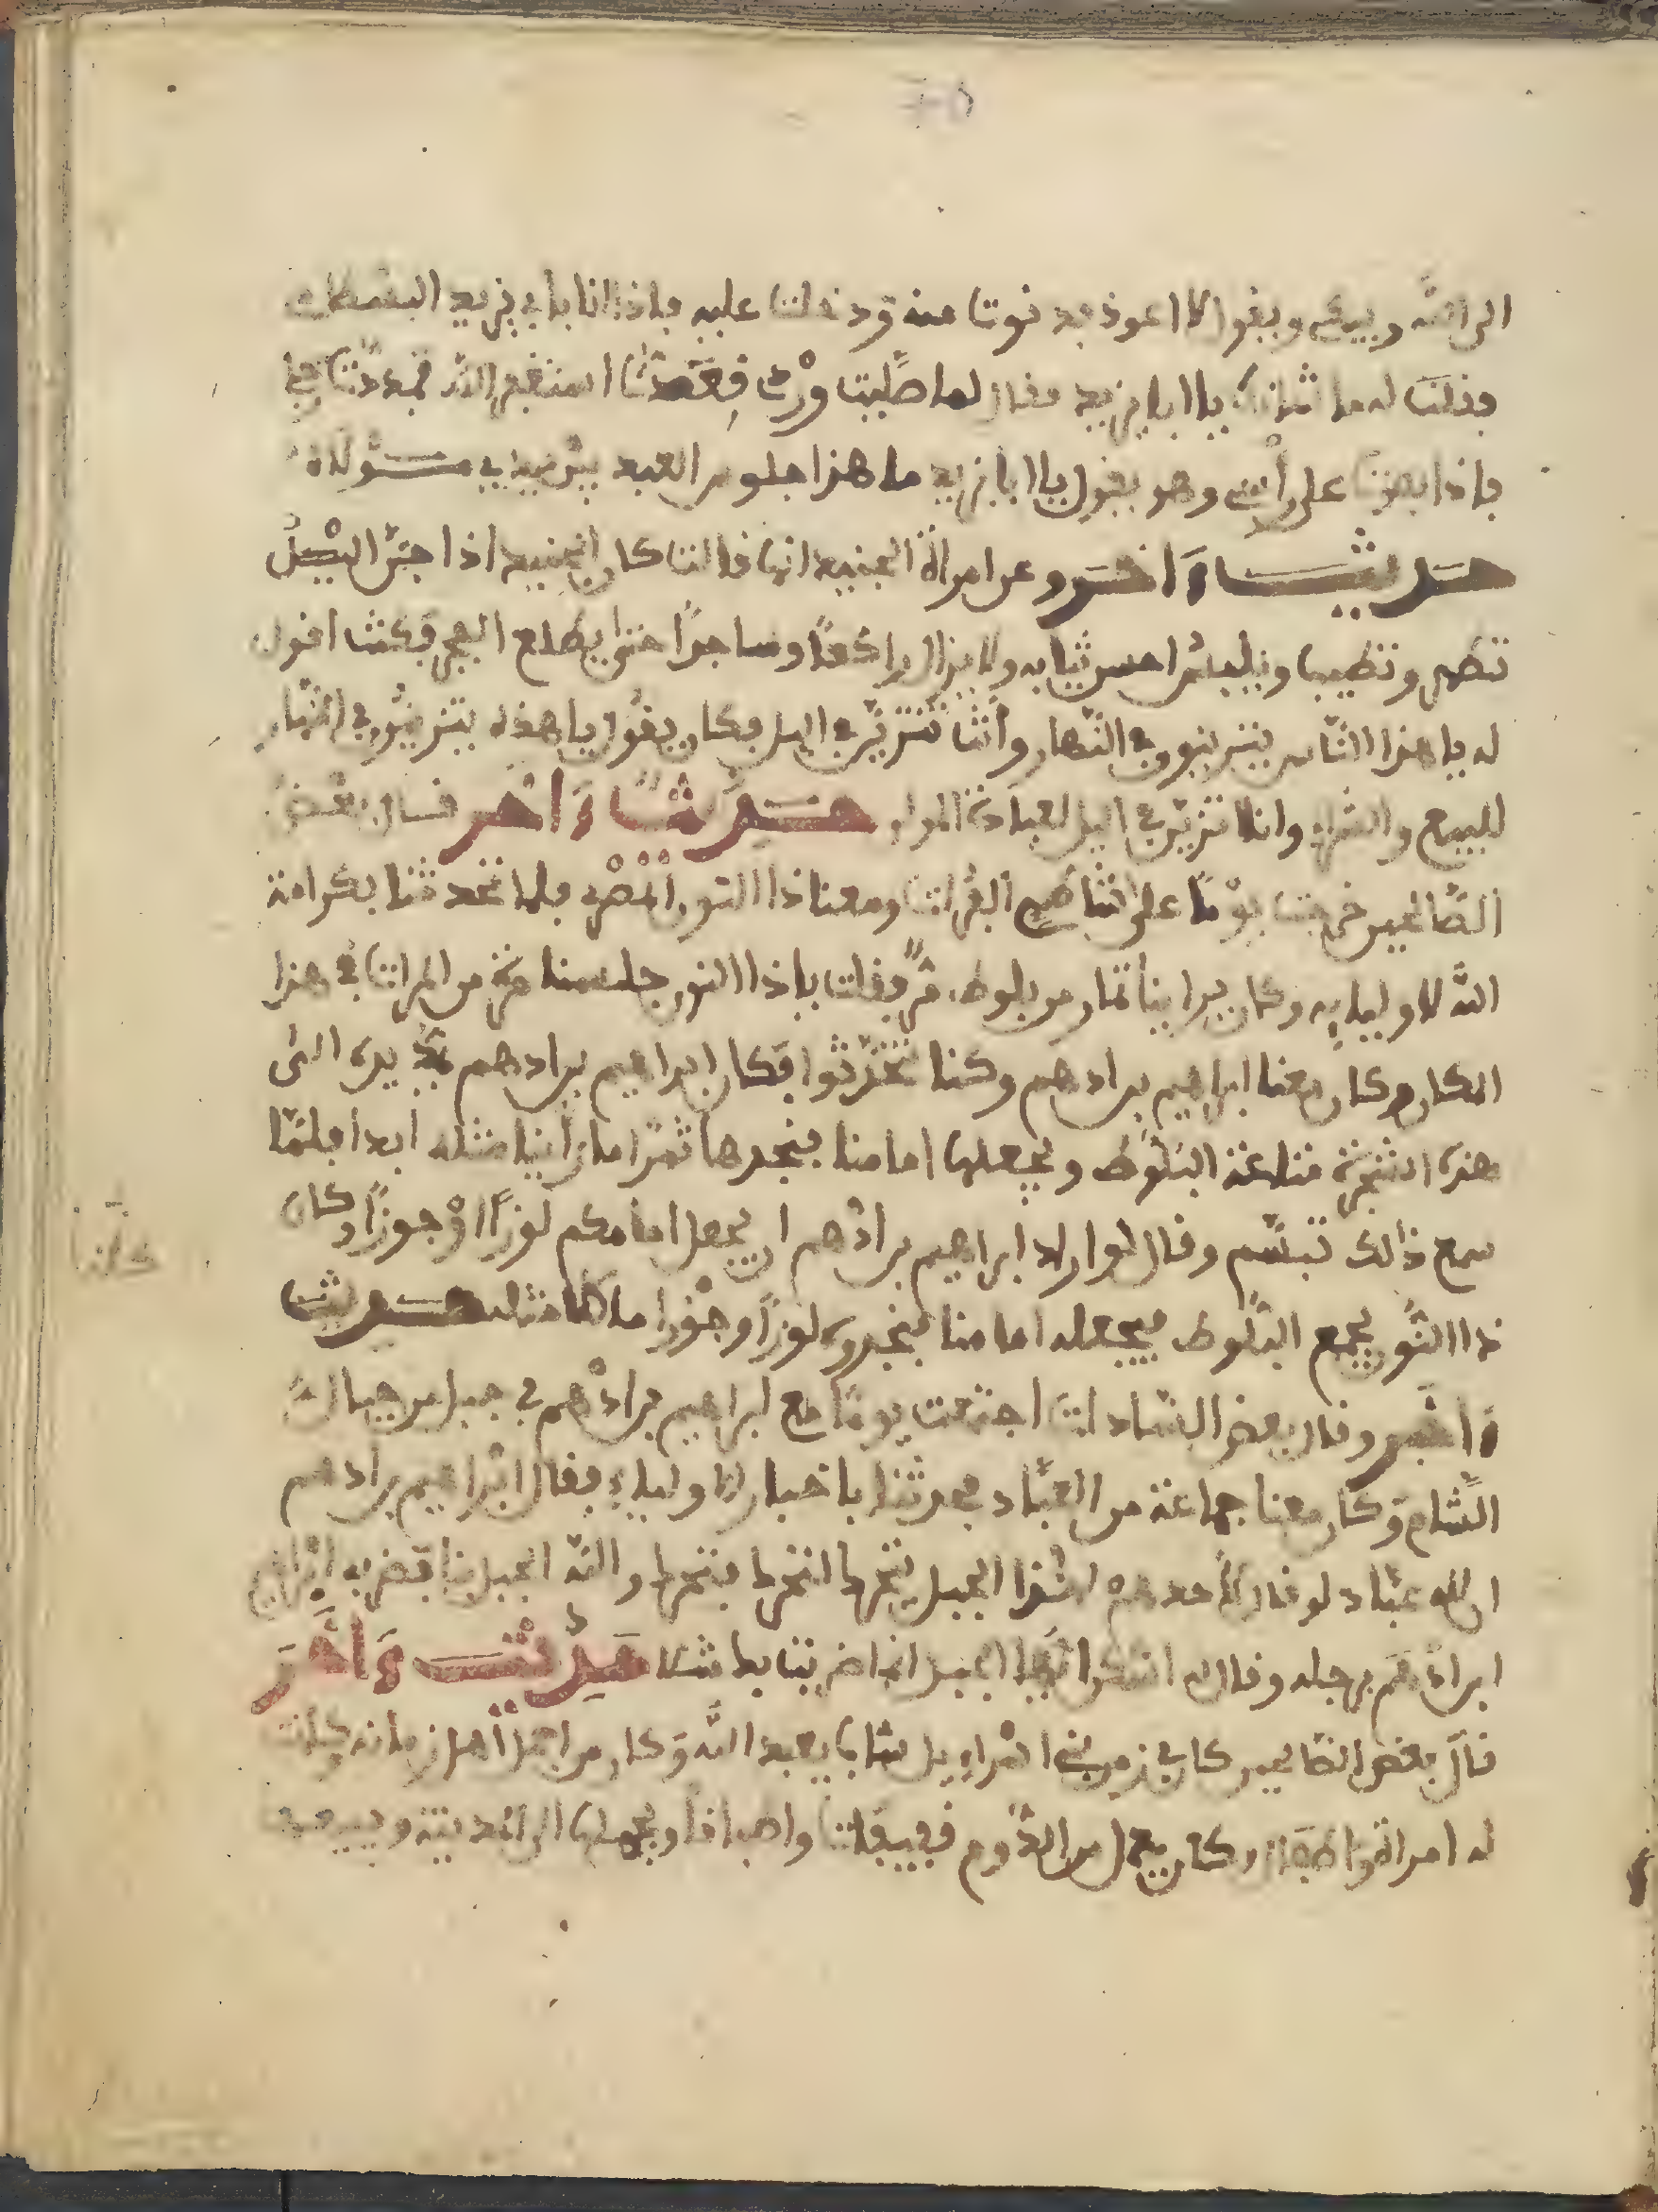 الى الله ويبكى ويقول لا اعوذ بعد قوتا منه ودخلت عليه فاذا انا بابى يزيد البسطامى
فقلت له ما شانك يا ابا يزيد فقال لما صليت ورد فعدت استغفر الله فمددت رجلى
فاذا بصوت على رأسى وهو يقول يا ابا يزيد ما هذا جلوس العبد بين يدى مولاه
حديث ءاخر وعن امراة الجنيد انها قالت كان الجنيد اذا جن اليل
تطهر وتطيب ويلبس احسن ثيابه ولا يزال راكعا وساجدا حتى يطلع الفجر فكنت اقول
له يا هذا الناس يتزينون فى النهار وأنت تتزين فى اليل فكان يقول يا هذه يتزينون فى النهار
للبيع والشراء وانا نتزين فى اليل لعبادة المولى حديث ءاخر قال بعض
الصالحين خرجت يوما على شاطئ الفرات ومعنا ذا النون المصرى فلما تحدثنا بكرامة
الله لاوليايه وكان بين ايدينا ثمار من بلوط مر فقلت يا ذا النون جلسنا مرة من المرات فى هذا
المكان وكان معنا ابراهيم بن ادهم وكنا نتحدثوا فكان ابراهيم بن ادهم يمد يده الى
هذه الشجرة متاعة البلوط ويجعلها امامنا فنجدها تمرا ما رأينا مثله ابدا فلما
سمع ذالك تبسم وقال لو اراد ابراهيم بن ادهم ان يجعل امامكم لوزا او جوزا وكان
ذا النون يجمع البلوط فيجعله امامنا فنجدوه لوزا وجوزا ما كنا مثله حديث
ءاخر وقال بعض السادات اجتمعت يوما مع ابراهيم بن ادهم فى جبل من جبال
الشام وكان معنا جماعة من العباد يحدثنا باخبار الاولياء فقال ابراهيم بن ادهم
ان لله عباد لو قال احدهم لهذا الجبل يتحرك لتحرك فتحرك والله الجبل بنا فضربه ابراهيم
ابن ادهم برجله وقال له اسكن ايها الجبل انما ضربنا بك مثلا حديث ءاخر
قال بعض الصالحين كان فى زمن بنى اسرائيل شابا يعبد الله وكان من اجمل اهل زمانه وكانت
له امراة واطفال وكان يعمل من الدوم قفيفات واطباقا ويحملها الى المدينة ويبيعها